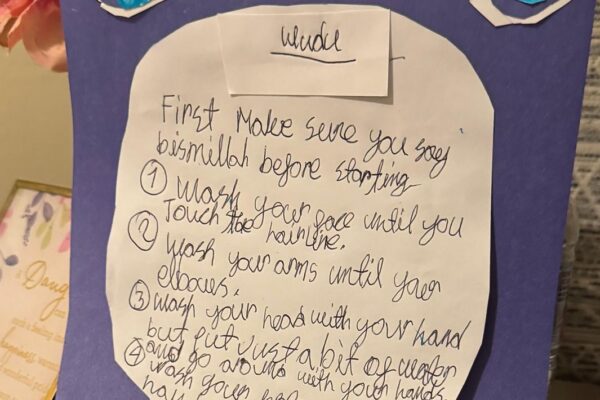 wudu
First Make sure you say
bismillah before starting
① Wash your face until you
Touch the hairline.
② Wash your arms until your
elbows.
③ Wash your head with your hand
but put just a bit of water
and go around with your hands
④ wash your